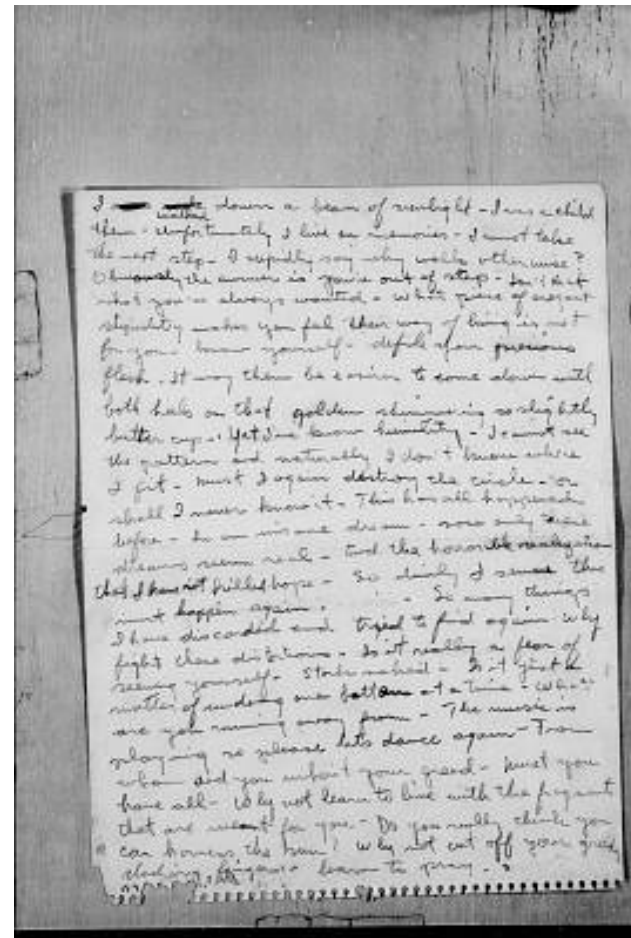 I walked down a beam of sunlight - I was a child
then - unfortunately I live on memories - I cannot take
the next step - I stupidly say why walk otherwise?
Obviously the answer is you're out of step - Isn't it
what you've always wanted - What piece of
stupidity makes you feel their way of living is not
for you know yourself - defile your precious
flesh. It may then be easier to come down with
both heels on that golden shimmering so slightly
butter cup - Yet I've known humility - I cannot see
the pattern and naturally I don't know where
I fit - must I again destroy the circle - or
shall I never know it - This has all happened
before - In an insane dream - now only these
dreams seem real - and the horrible realization
that I have not killed hope - So dimly I sense this
must happen again. So many things
I have discarded and tryed to find again Why
fight these distortions - Is it really a fear of
seeing yourself - Stark naked - Is it just a
matter of undoing one button at a time - What
are you running away from - The music is
playing so please lets dance again - From
whom did you inherit your greed - must you
have all - Why not learn to live with the fragment
that are meant for you - Do you really think you
can harness the sun? Why not cut off your greedy
fingers learn to pray - ?